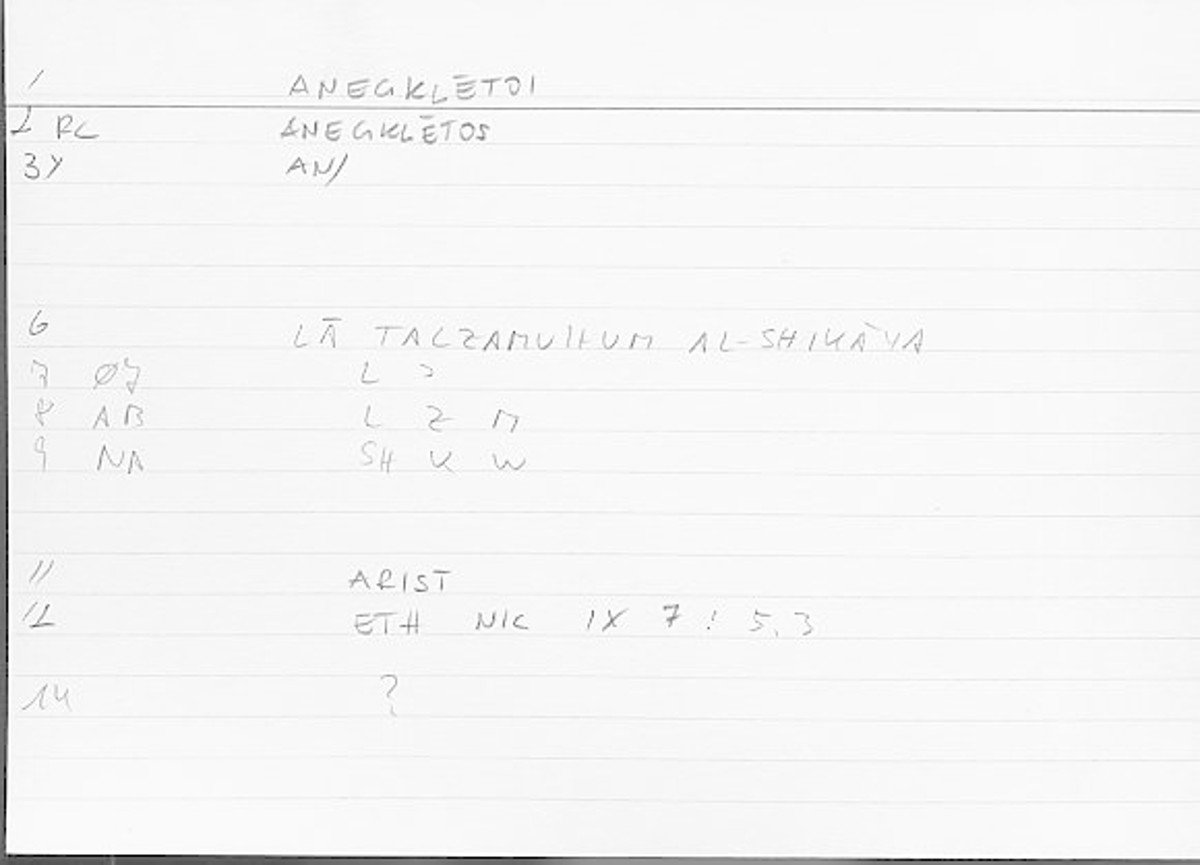 1 ANEGKLĒTOI
2 RC ANEGKLĒTOS
3Y AN/
6 LĀ TALZAMUHUM AL-SHIKĀYA
7 ØJ L ɔ
8 AB L Z M
9 NA SH K W
11 ARIST
12 ETH NIC IX 7 : 5,3
14 ?